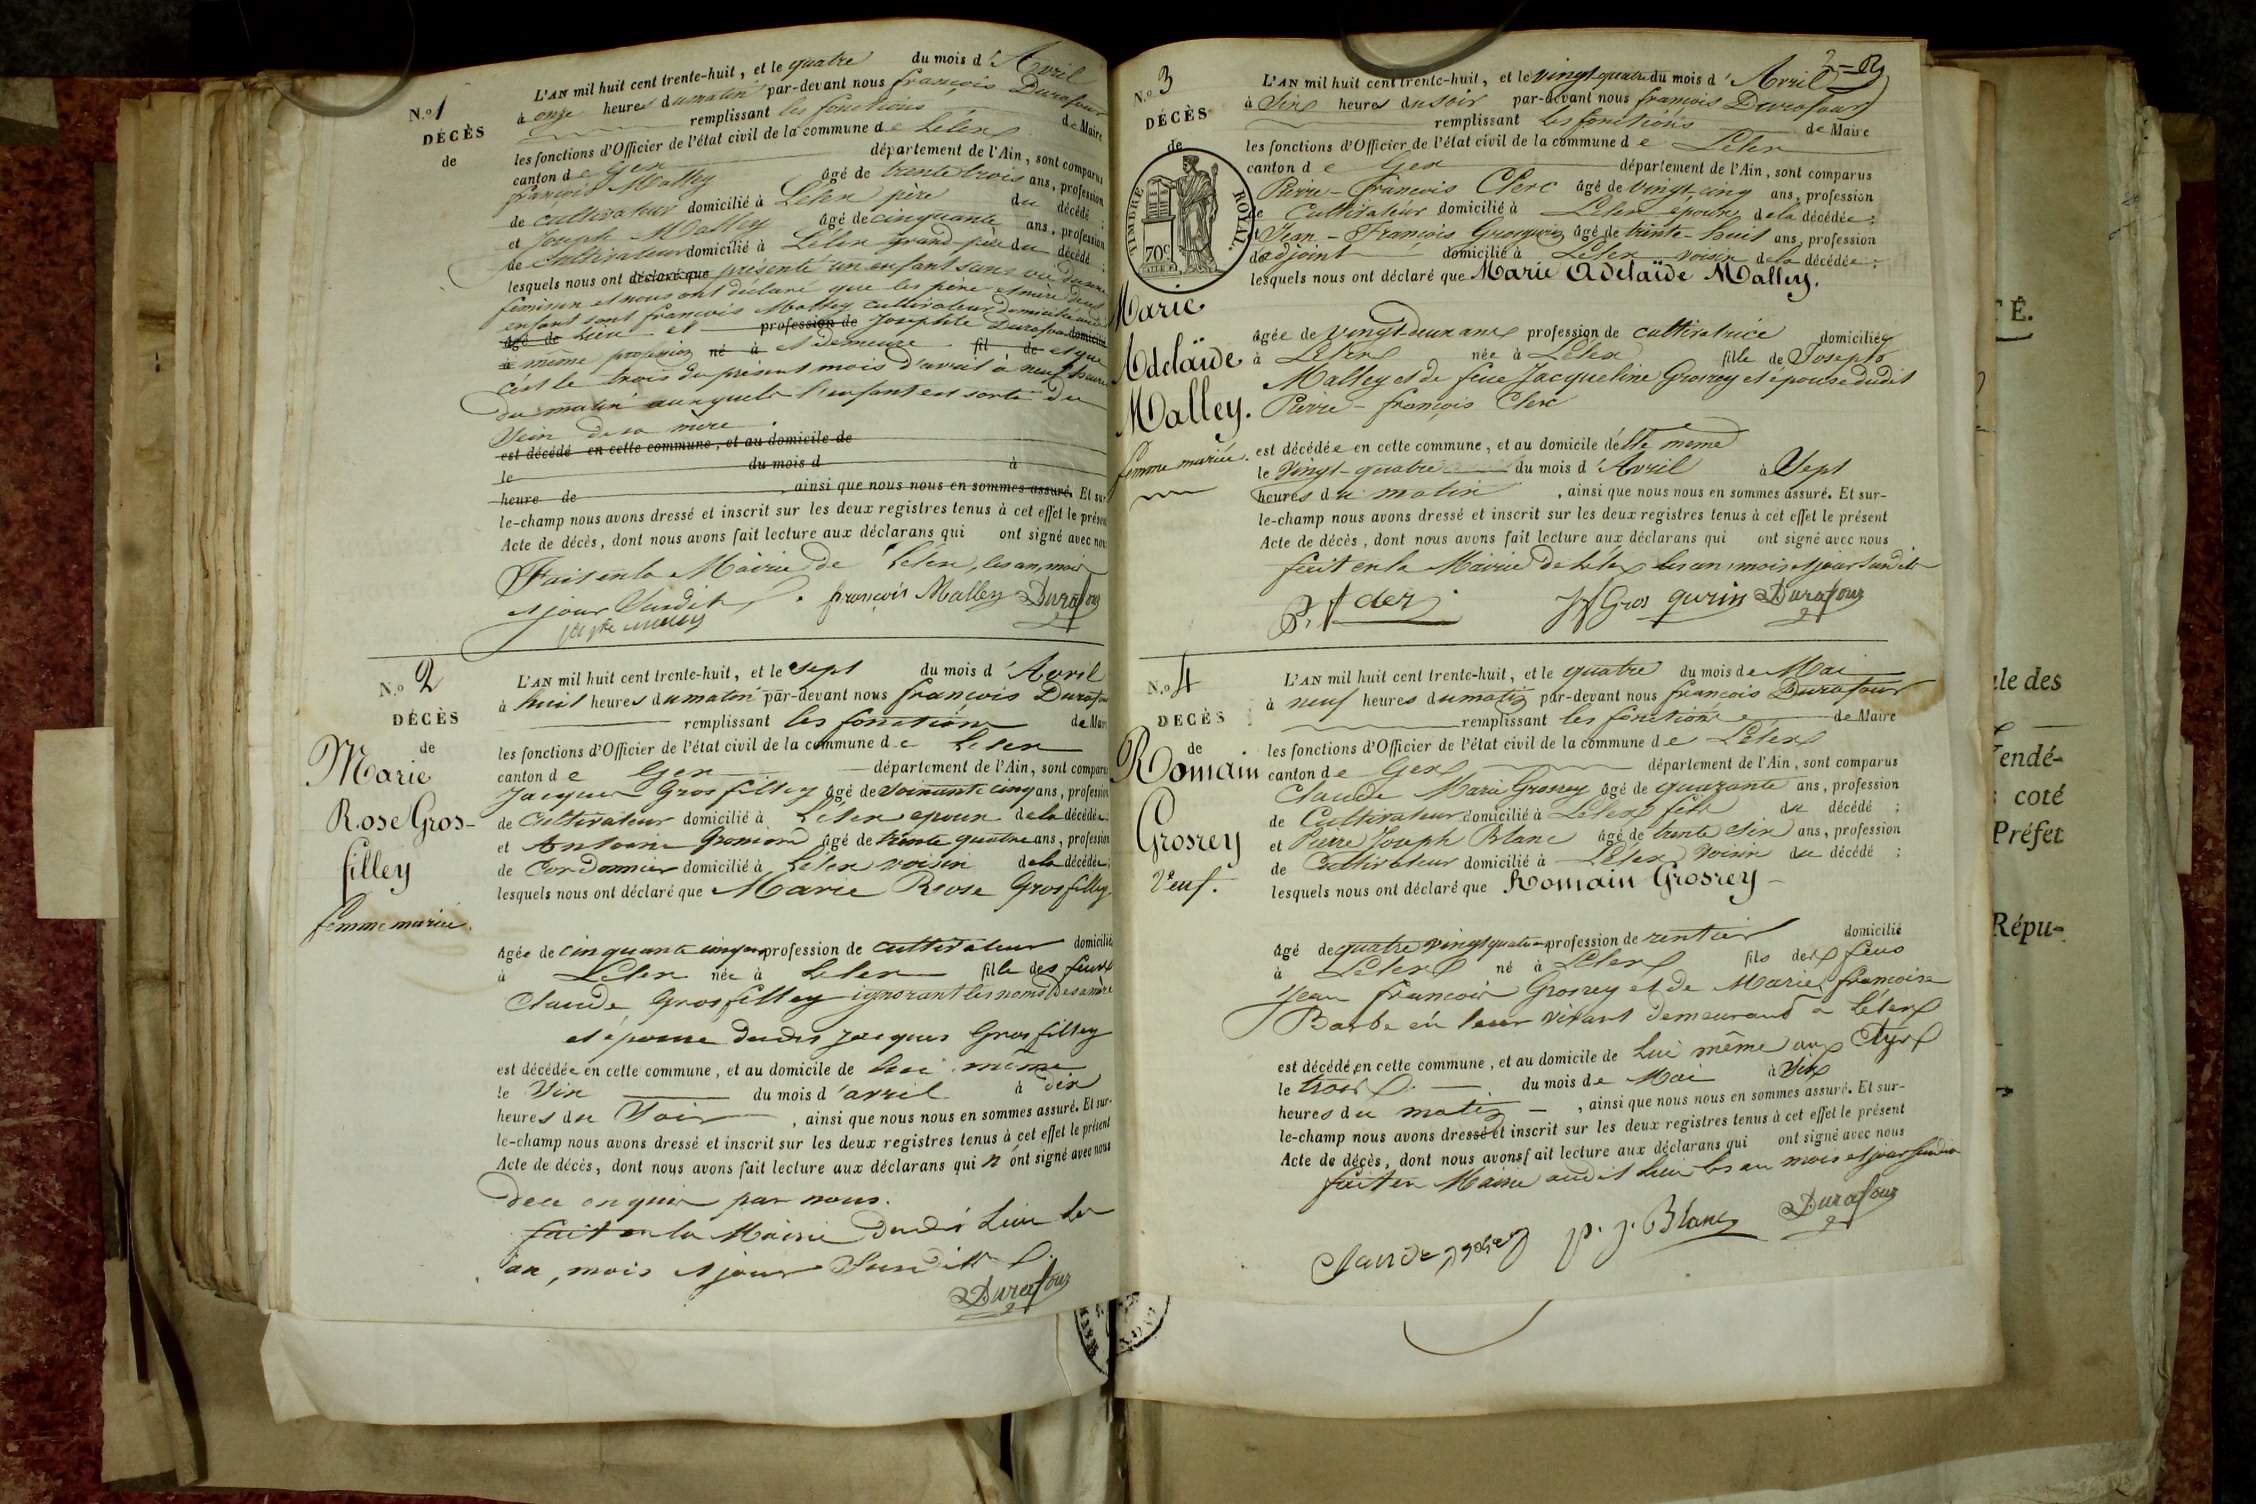 N.o 1
DÉCÈS
de
L'AN mil huit cent trente-huit, et le quatre du mois d'Avril
à onze heures du matin par-devant nous françois Durafour
remplissant les fonctions de Maire
les fonctions d'Officier de l'état civil de la commune de Lelex
canton de Gex département de l'Ain, sont comparus
françois Malley âgé de trente trois ans, profession
de cultivateur domicilié à Lelex père du décédé ;
et Joseph Malley âgé de cinquante ans, profession
de Cultivateur domicilié à Lélex grand-père du décédé ;
lesquels nous ont déclaré que présenté un enfant sans vie du sexe
feminin et nous ont déclaré que les père et mère dudit
enfant sont françois Malley cultivateur domicilié audit
âgé de lieu et profession de Josephte Durafour domicilié
à même profession né à et demeure fil de et que
c'est le trois du présent mois d'avril à neuf heures
du matin auxquels l'enfant est sorti du
sein de sa mère.
est décédé en cette commune, et au domicile de
le du mois d à
heure de ainsi que nous nous en sommes assuré. Et sur-
le-champ nous avons dressé et inscrit sur les deux registres tenus à cet effet le présent
Acte de décès, dont nous avons fait lecture aux déclarans qui ont signé avec nous
Fait en la Mairie de Lélex, les an, mois
et jour Susdits françois Malley Durafour
N.o 2
DÉCÈS
de
Marie
Rose Gros-
filley
femme mariée.
L'AN mil huit cent trente-huit, et le sept du mois d'Avril
à huit heures du matin par-devant nous françois Durafour
remplissant les fonctions de Maire
les fonctions d'Officier de l'état civil de la commune de Lelex
canton de Gex département de l'Ain, sont comparus
Jacques Grosfilley âgé de soixante cinq ans, profession
de Cultivateur domicilié à Lélex epoux de la décédée ;
et Antoine âgé de trente quatre ans, profession
de Cordonnier domicilié à Lelex voisin de la décédée ;
lesquels nous ont déclaré que Marie Rose Grosfilley
âgée de cinquante cinq ans profession de cultivateur domicilié
à Lelex née à Lelex fille des feux
Claude Grosfilley ignorant les noms de sa mère
et épouse dudit Jacques Grosfilley
est décédée en cette commune, et au domicile de lui même
le Six du mois d'avril à dix
heures du Soir, ainsi que nous nous en sommes assuré. Et sur-
le-champ nous avons dressé et inscrit sur les deux registres tenus à cet effet le présent
Acte de décès, dont nous avons fait lecture aux déclarans qui n'ont signé avec nous
de ce enquis par nous.
fait en la Mairie dudit Lieu les
an, mois et jour Susdits
Durafour
N.o 3
DÉCÈS
de
TIMBRE ROYAL
70 c
Marie
Adelaïde
Malley.
femme mariée.
L'AN mil huit cent trente-huit, et le vingt quatre du mois d'Avril
à Six heures du soir par-devant nous françois Durafour
remplissant les fonctions de Maire
les fonctions d'Officier de l'état civil de la commune de Lelex
canton de Gex département de l'Ain, sont comparus
Pierre-françois Clerc âgé de vingt-cinq ans, profession
de Cultivateur domicilié à Lelex époux de la décédée ;
et Jean-François Grosgurin âgé de trente-huit ans, profession
d'adjoint domicilié à Lelex voisin de la décédée ;
lesquels nous ont déclaré que Marie Adelaïde Malley.
âgée de vingt-deux ans profession de cultivatrice domiciliée
à Lélex née à Lélex fille de Joseph
Malley et de feue Jacqueline Grosrey et épouse dudit
Pierre-françois Clerc
est décédée en cette commune, et au domicile d'elle même
le Vingt-quatre du mois d'Avril à Sept
heures du matin, ainsi que nous nous en sommes assuré. Et sur-
le-champ nous avons dressé et inscrit sur les deux registres tenus à cet effet le présent
Acte de décès, dont nous avons fait lecture aux déclarans qui ont signé avec nous
fait en la Mairie de Lélex les an, mois et jour Susdits
Jf Gros gurin Durafour
N.o 4
DÉCÈS
de
Romain
Grosrey
Veuf.
L'AN mil huit cent trente-huit, et le quatre du mois de Mai
à neuf heures du matin par-devant nous françois Durafour
remplissant les fonctions de Maire
les fonctions d'Officier de l'état civil de la commune de Lélex
canton de Gex département de l'Ain, sont comparus
Claude Marie Grosrey âgé de quarante ans, profession
de Cultivateur domicilié à Lelex fils du décédé ;
et Pierre Joseph Blanc âgé de trente six ans, profession
de Cultivateur domicilié à Lélex Voisin du décédé ;
lesquels nous ont déclaré que Romain Grosrey
âgé de quatre vingt quatre ans profession de rentier domicilié
à Lelex né à Lelex fils des feus
Jean françois Grosrey et de Marie françoise
Barbe en leur vivant demeurand à Lélex
est décédé en cette commune, et au domicile de lui même
le trois du mois de Mai à Six
heures du matin, ainsi que nous nous en sommes assuré. Et sur-
le-champ nous avons dressé et inscrit sur les deux registres tenus à cet effet le présent
Acte de décès, dont nous avons fait lecture aux déclarans qui ont signé avec nous
fait en Mairie audit Lieu les an mois et jour susdits
p. j. Blanc Durafour
TÉ.
ale des
coté
Préfet
Répu-